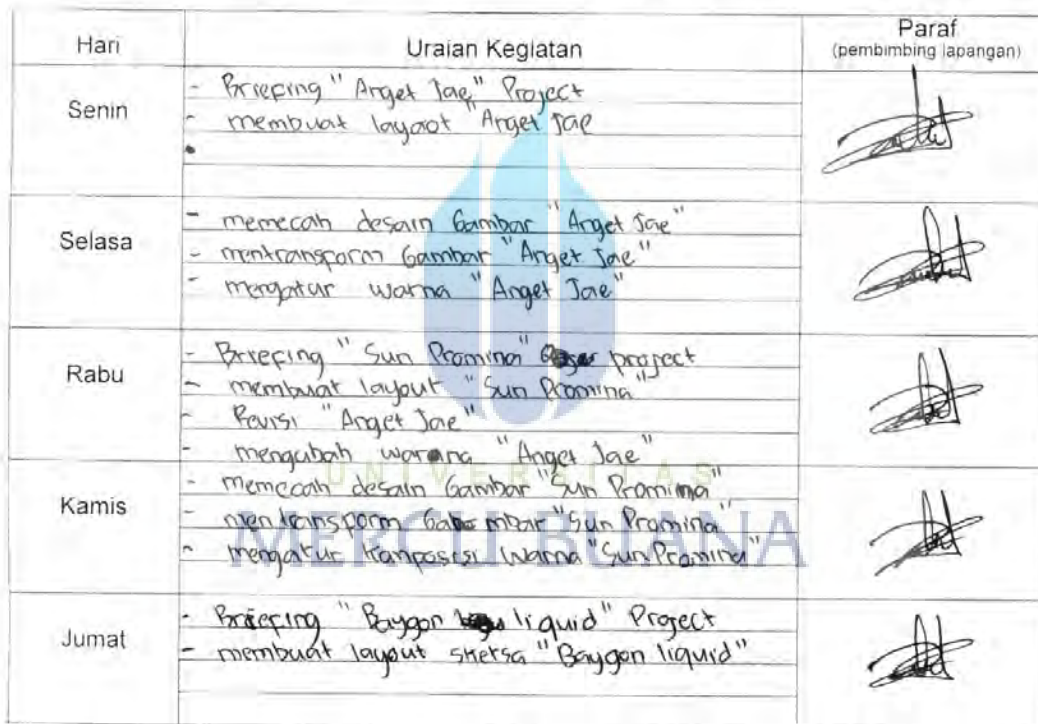 Hari Uraian Kegiatan Paraf
(pembimbing lapangan)
Senin
- Briefing "Anget Jae" Project
- membuat layout "Anget Jae
Selasa
- memecah desain Gambar "Anget Jae"
- mentransform Gambar "Anget Jae"
- mengatur warna "Anget Jae"
Rabu
- Briefing "Sun Promina" project
- membuat layout "Sun Promina"
- Revisi "Anget Jae"
- mengubah warana "Anget Jae"
UNIVERSITAS
MERCU BUANA
Kamis
- memecah desain Gambar "Sun Promina"
- mentransform Gambar "Sun Promina"
- mengatur komposisi warna "Sun Promina"
Jumat
- Briefing "Baygon liquid" Project
- membuat layout sketsa "Baygon liquid"